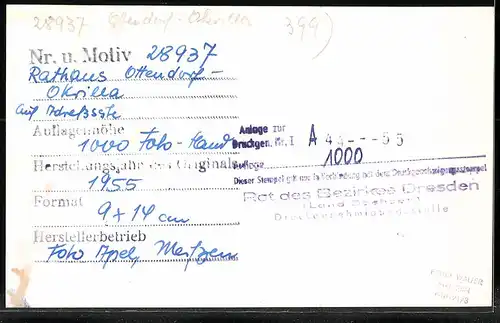 28937 Ottendorf-Okrilla 399)
Nr. u. Motiv 28937
Rathaus Ottendorf-
Okrilla
auf Adreßseite
Auflagenhöhe
1000 Foto-Hand
Herstellungsjahr des Originals
1955
Format
9 x 14 cm
Herstellerbetrieb
Foto Apel, Meißen
Anlage zur
Druckgen. Nr. I A 43 - - 55
Auflage 1000
Dieser Stempel gilt nur in Verbindung mit dem Druckgenehmigungsstempel
Rat des Bezirkes Dresden
(Land Sachsen)
Druckgenehmigungsstelle